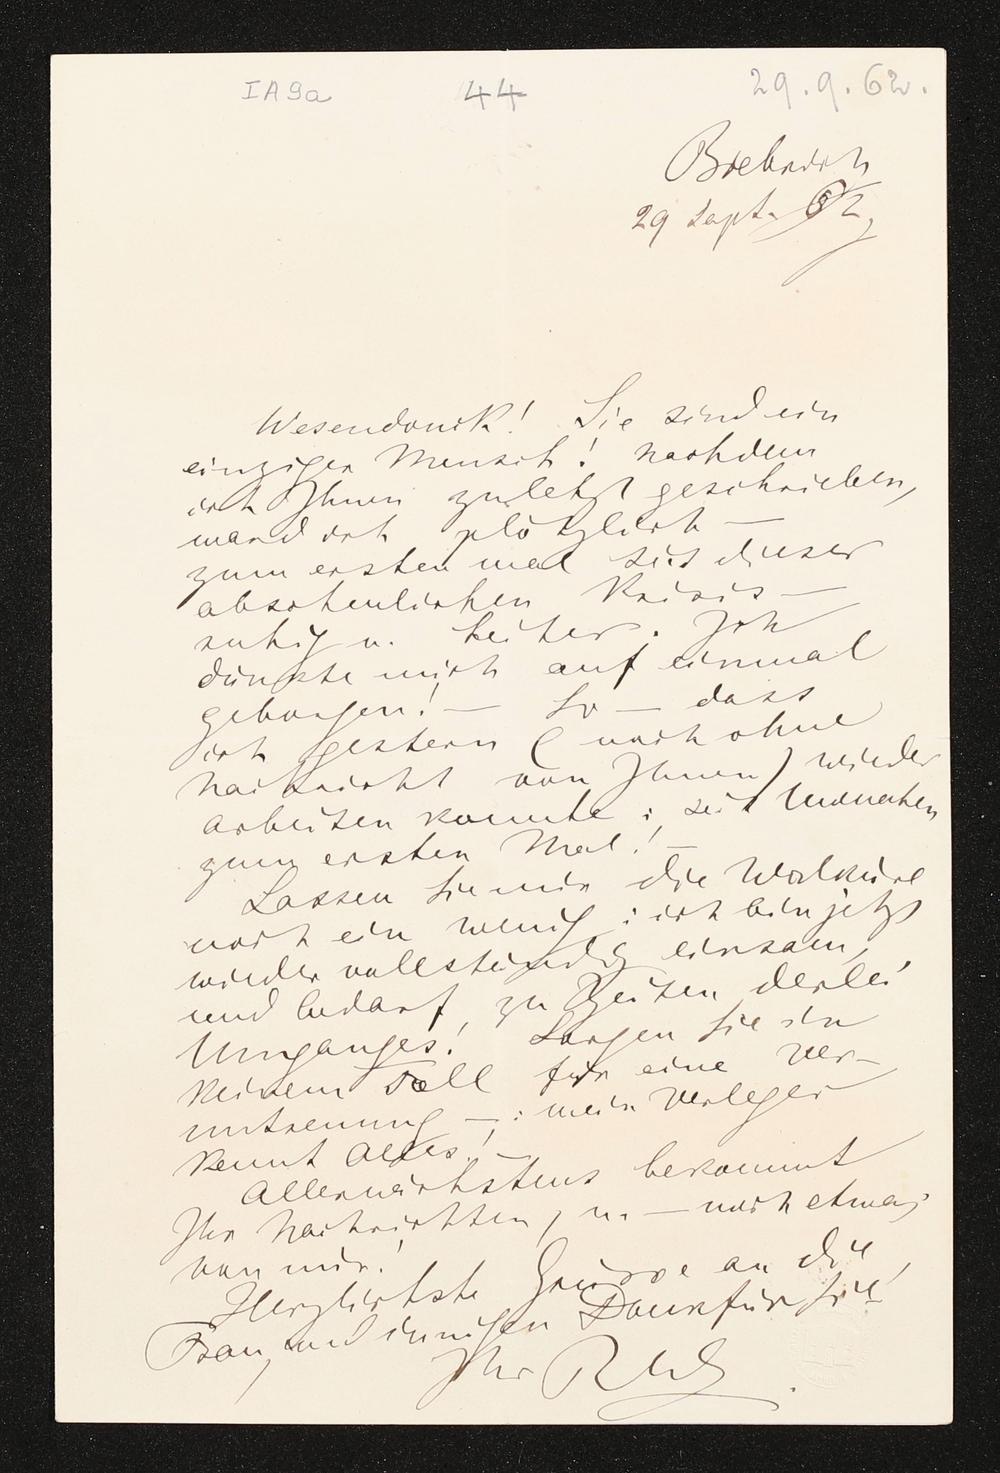 IA9a 44 29.9.62.
Biebrich
29 Sept. 62,
Wesendonck! Sie sind ein
einziger Mensch! Nachdem
ich Ihnen zuletzt geschrieben,
ward ich plötzlich —
zum ersten mal seit dieser
abscheulichen Krisis —
ruhig u. heiter. Ich
dünkte mich auf einmal
geborgen! — So — dass
ich gestern (noch ohne
Nachricht von Ihnen) wieder
arbeiten konnte; seit Monaten
zum ersten Mal! —
Lassen Sie mir die Walküre
noch ein wenig: ich bin jetzt
wieder vollständig einsam,
und bedarf, zu Zeiten derlei
Umganges! Sorgen Sie in
keinem Fall für eine Ver-
untreuung —: mein Verleger
kennt Alles! —
Allernächstens bekommt
Ihr Nachrichten, u. — noch etwas
von mir!
Herzlichste Grüsse an die
Frau, und innigen Dank für Sie!
Ihr RW.